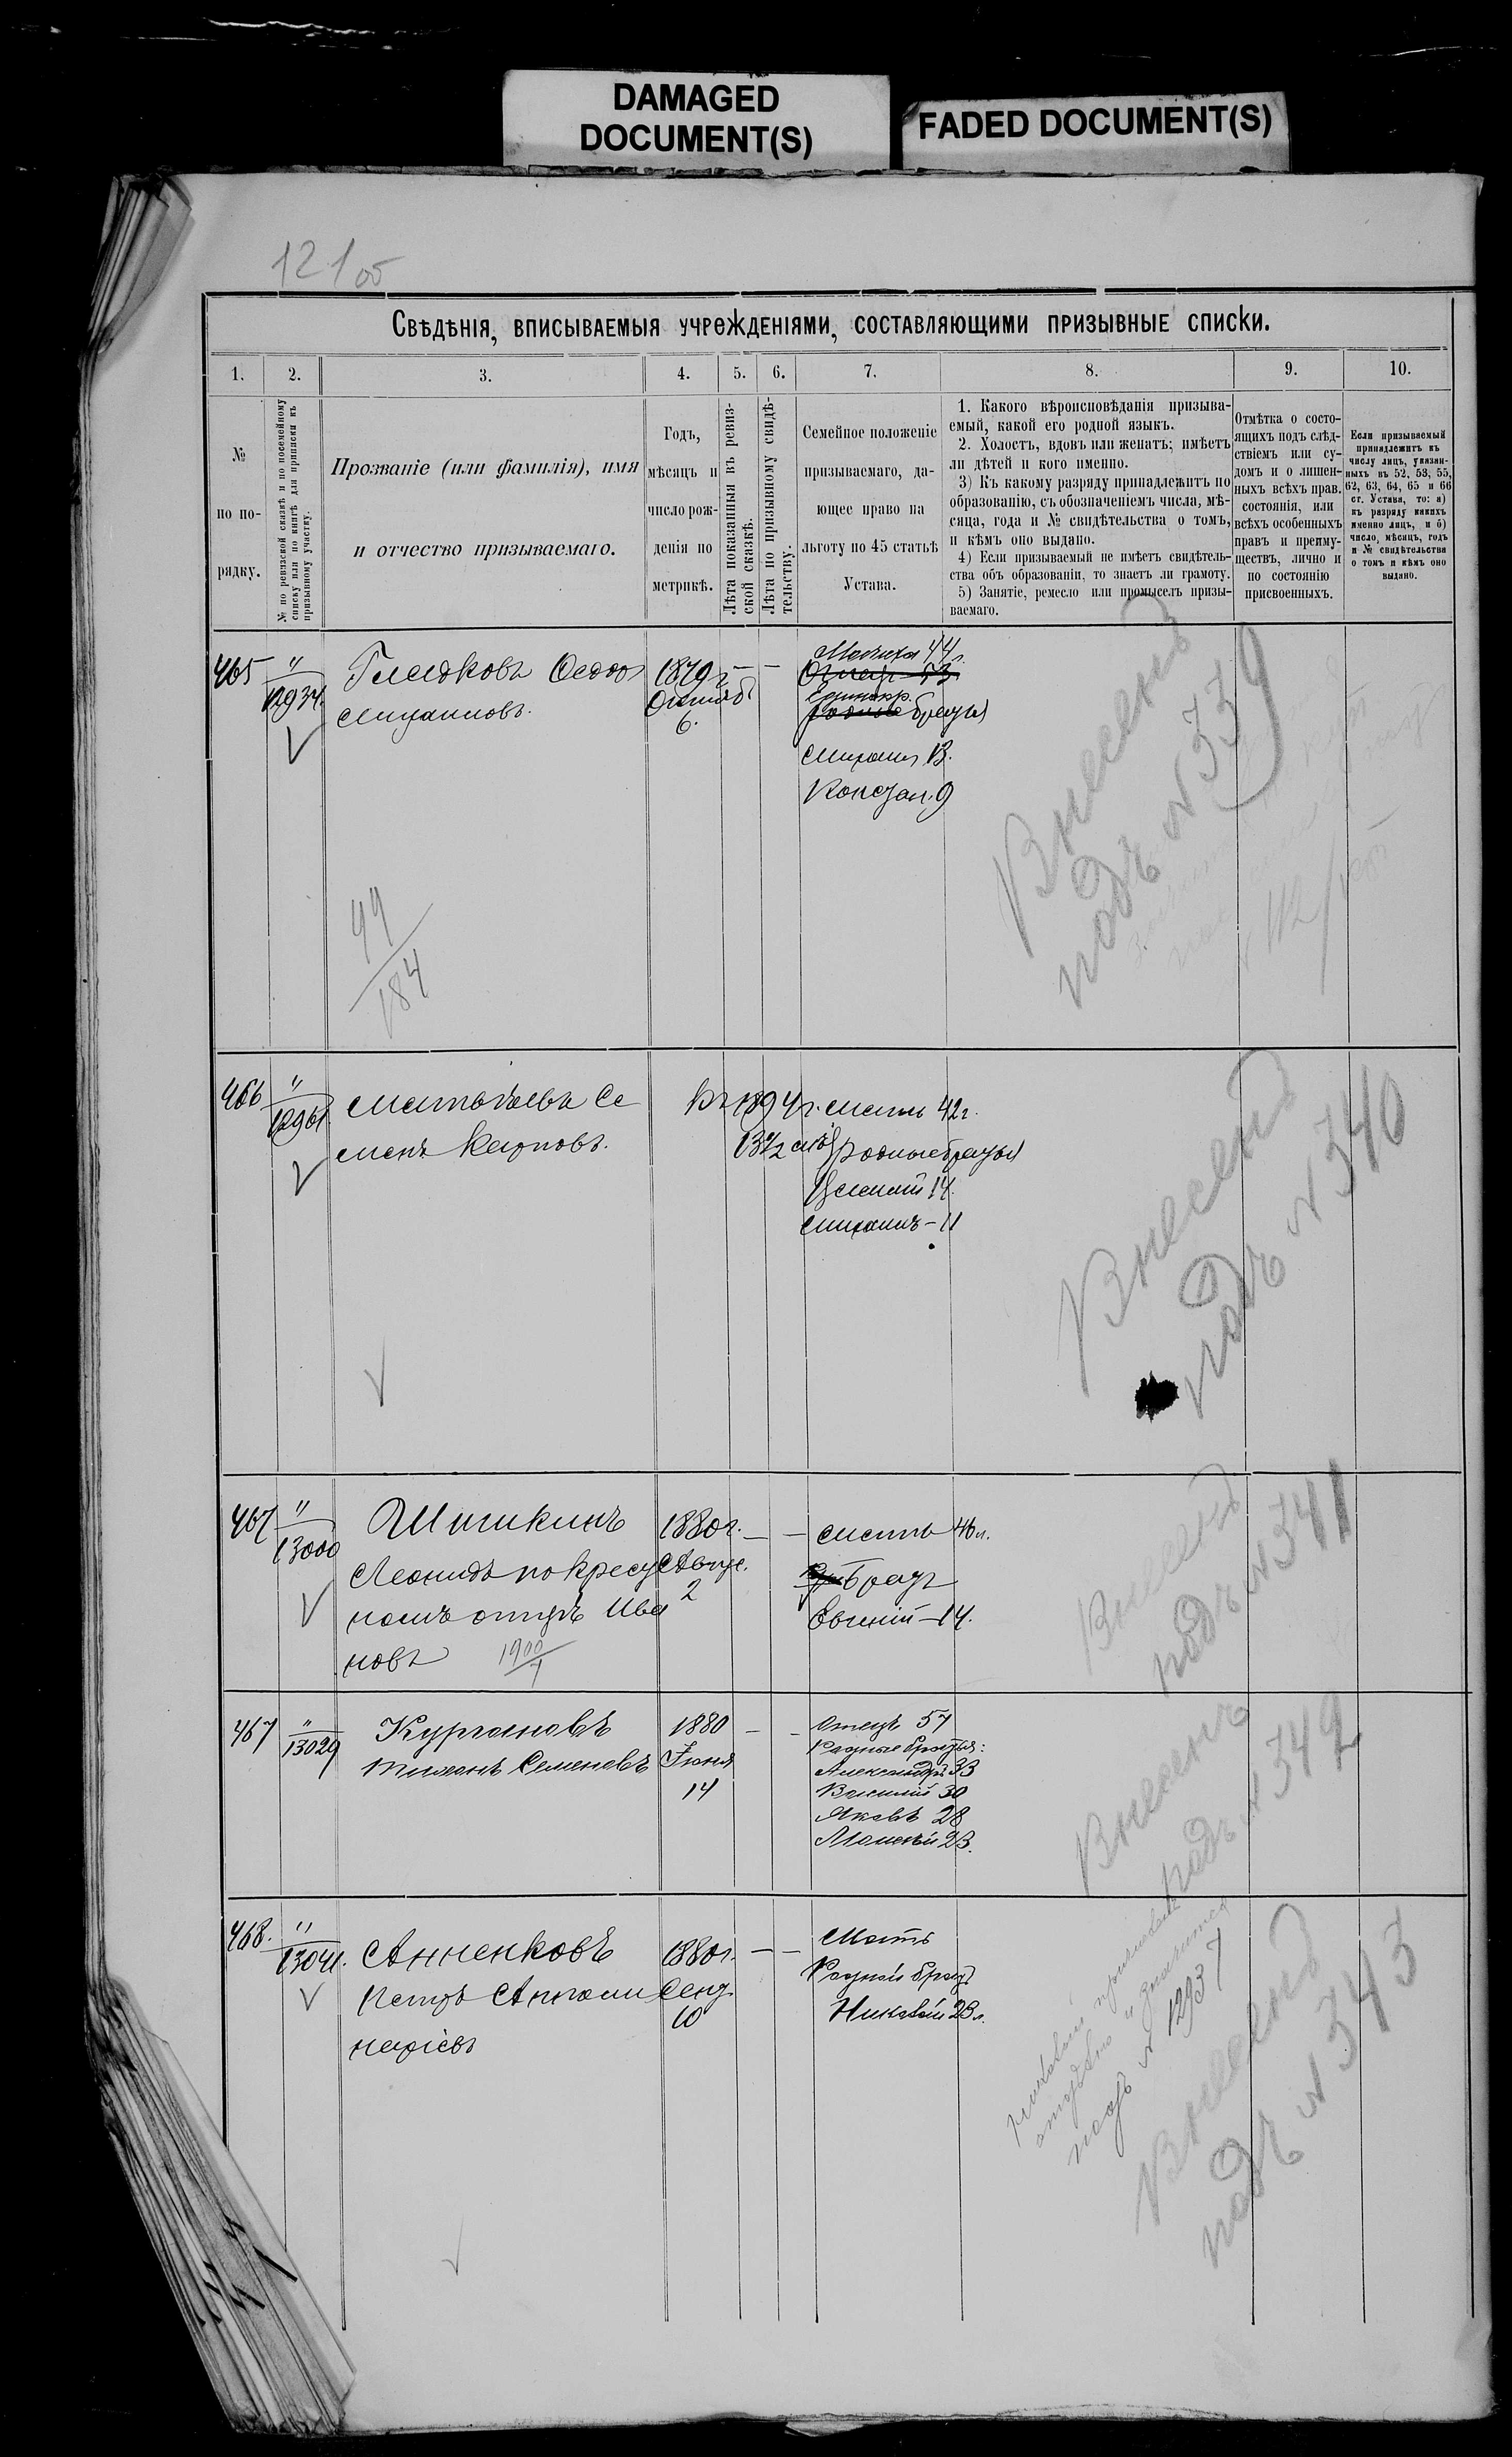 DAMAGED
DOCUMENT(S)
FADED DOCUMENT(S)
121об
Свѣдѣнія, вписываемыя учрежденіями, составляющими призывные списки.
1. 2. 3. 4. 5. 6. 7. 8. 9. 10.
№
по по-
рядку.
№ по ревизской сказкѣ и по посемейному
списку или по книгѣ для приписки къ
призывному участку.
Прозваніе (или фамилія), имя
и отчество призываемаго.
Годъ,
мѣсяцъ и
число рож-
денія по
метрикѣ.
Лѣта показанныя въ ревиз-
ской сказкѣ.
Лѣта по призывному свидѣ-
тельству.
Семейное положеніе
призываемаго, да-
ющее право на
льготу по 45 статьѣ
Устава.
1. Какого вѣроисповѣданія призыва-
емый, какой его родной языкъ.
2. Холостъ, вдовъ или женатъ; имѣетъ
ли дѣтей и кого именно.
3) Къ какому разряду принадлежитъ по
образованію, съ обозначеніемъ числа, мѣ-
сяца, года и № свидѣтельства о томъ,
и кѣмъ оно выдано.
4) Если призываемый не имѣетъ свидѣтель-
ства объ образованіи, то знаетъ ли грамоту.
5) Занятіе, ремесло или промыселъ призы-
ваемаго.
Отмѣтка о состо-
ящихъ подъ слѣд-
ствіемъ или су-
домъ и о лишен-
ныхъ всѣхъ прав.
состоянія, или
всѣхъ особенныхъ
правъ и преиму-
ществъ, лично и
по состоянію
присвоенныхъ.
Если призываемый
принадлежитъ къ
числу лицъ, указан-
ныхъ въ 52, 53, 55,
62, 63, 64, 65 и 66
ст. Устава, то: а)
къ разряду какихъ
именно лицъ, и б)
число, мѣсяцъ, годъ
и № свидѣтельства
о томъ и кѣмъ оно
выдано.
465 " 12934.
1879 г
Октяб
6.
Мачиха 44 л.
Отецъ 53
Единокр.
родные братья
Михаил 13.
Констан. 9
Внесенъ
подъ № 339
99/184
112/
466 " 12961.
Матвѣевъ Се
менъ Карповъ.
Въ 1894 г.
13 1/2
мать 42 г.
Родные братья
14.
Михаилъ - 11
Внесенъ
подъ № 340
467 " 13000
Шишкинъ
Леонидъ по крест
ному отцу Ива
новъ
1900/1
1880 г.
Авгус.
2
мать 46 л.
Братъ
Евгеній - 14.
Внесенъ
подъ № 341
467 " 13029
Кургановъ
Тихонъ Семеновъ
1880
Іюня
14
Отецъ 57
Родные братья:
Александръ 33
Василій 30
Яковъ 28
23.
Внесенъ
подъ № 342
468. " 13041.
Анненковъ
Петръ
1880 г.
Сент.
10
Мать
Родной братъ
Николай 23 л.
Николай
подъ № 12937
Внесенъ
подъ № 343